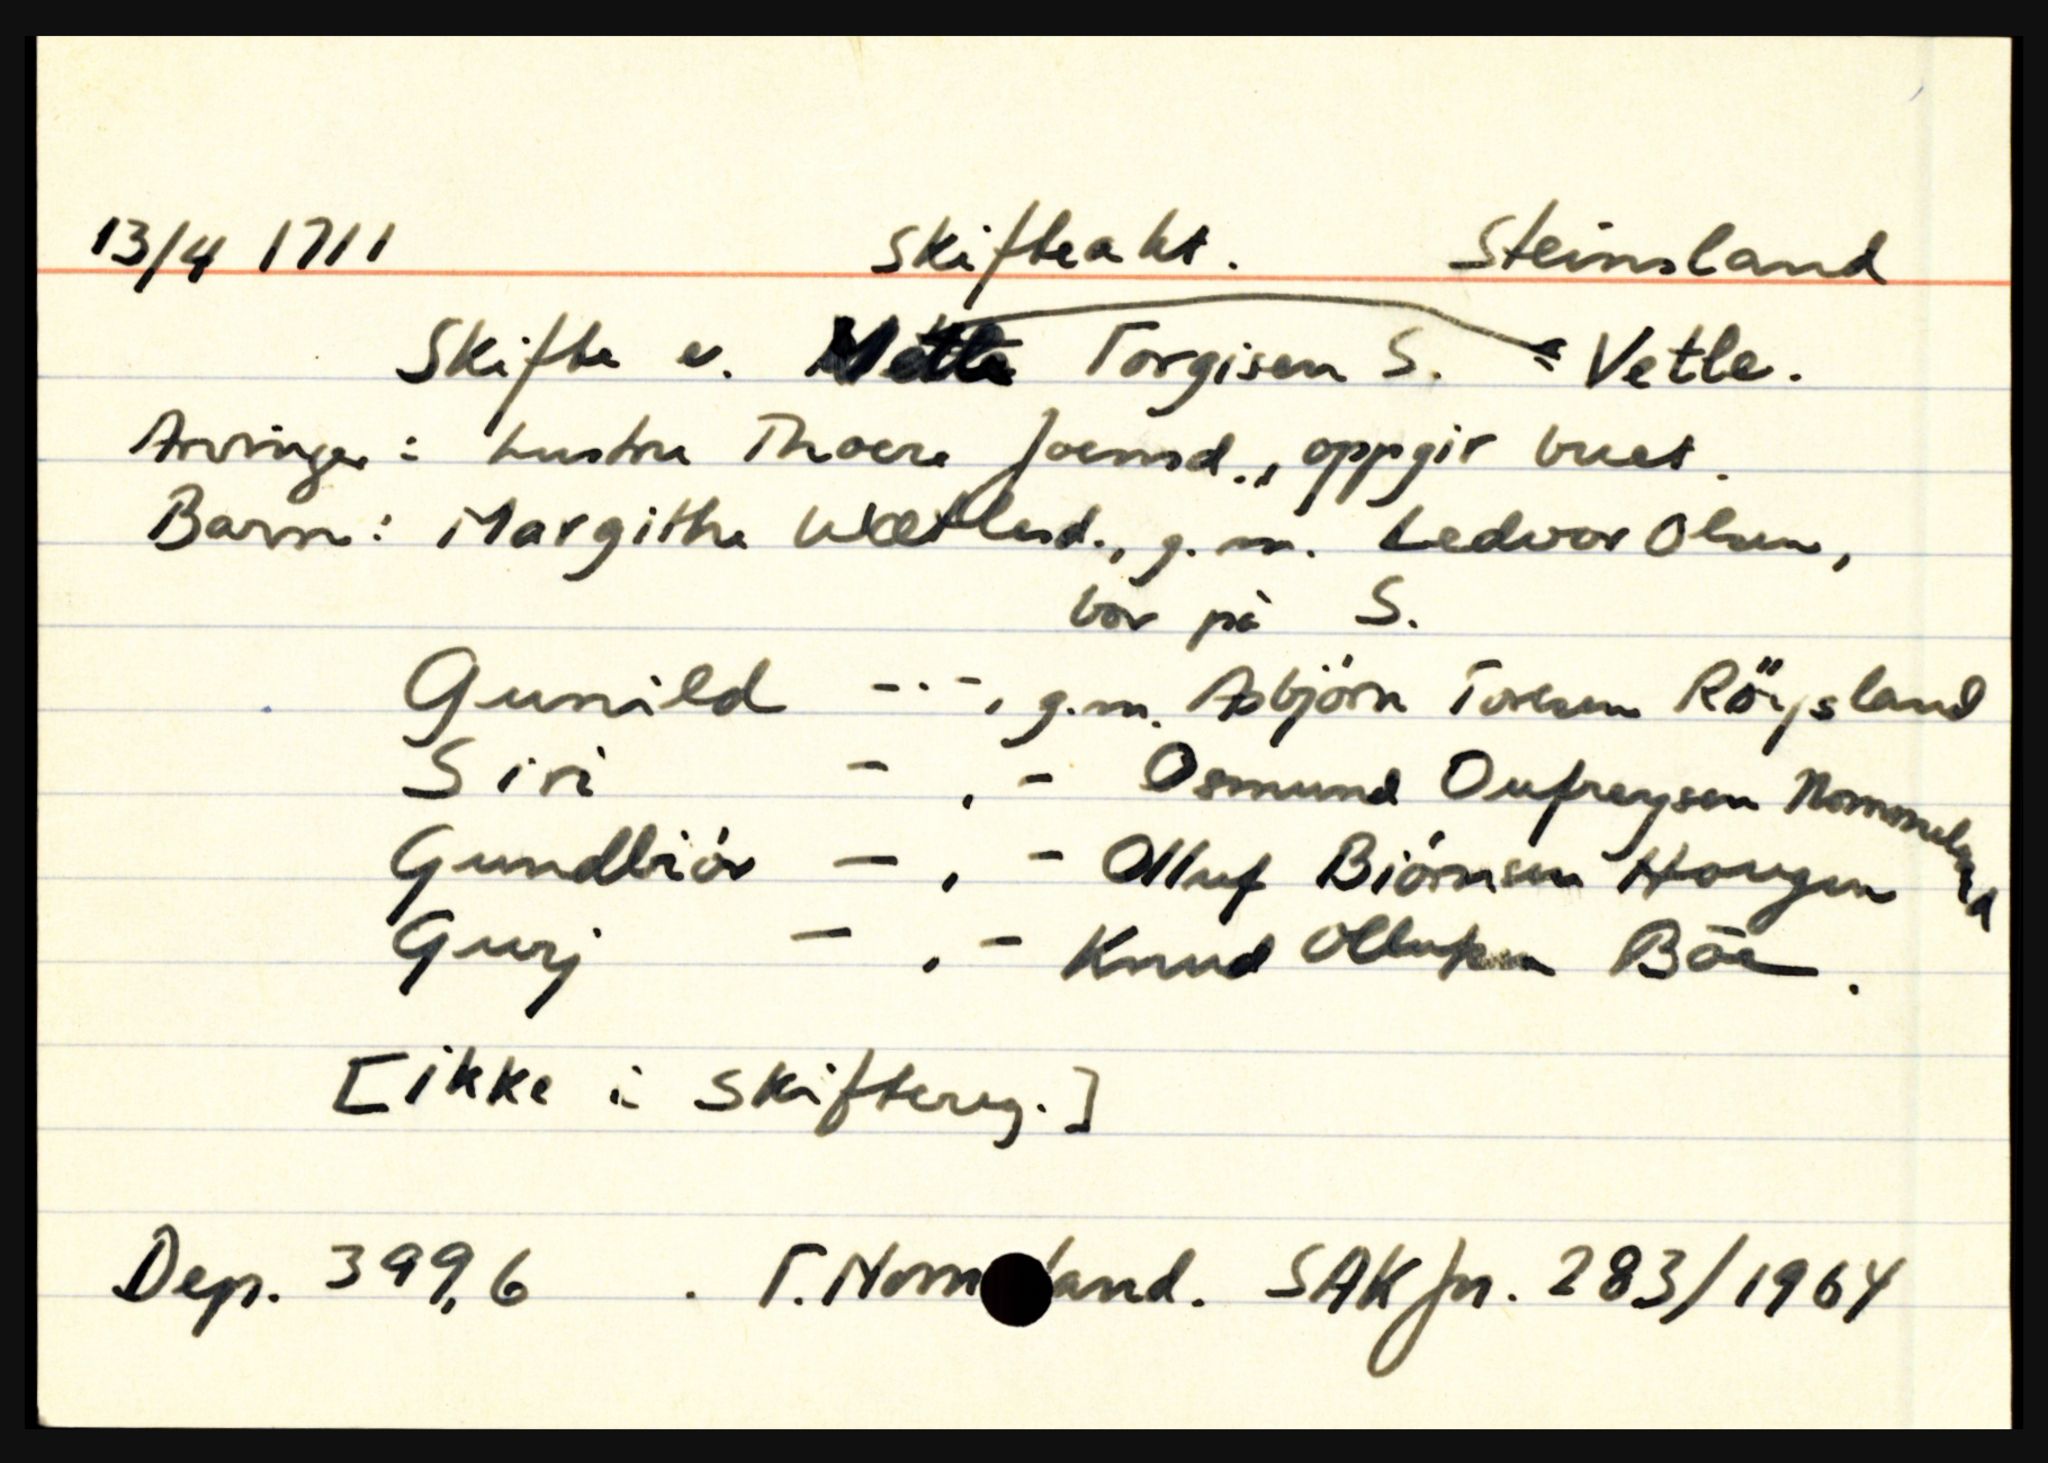 13/4 1711 Skifteakt. Steinsland
Skifte e. Vetle Torgisen S. = Vetle.
Arvinger: hustru Thoere Joensd., oppgir buet.
Barn: Margithe Wætlesd., g.m. Ledvor Olsen,
bor på S.
Gunild -"-, g.m. Asbjörn Toresen Röysland
Siri - , - Osmund Oufreysen Nommeland
Gundbiör - , - Olluf Biörnsen Hougen
Gurj - , - Knud Ollufsen Böe.
[ikke i skiftereg.]
Dep. 399,6 . T. Nom land. SAK jn. 283/1964